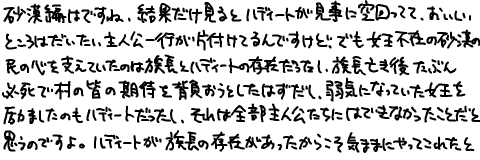 砂漠編はですね、結果だけ見るとハディートが見事に空回ってて、おいしい
ところはだいたい主人公一行が片付けてるんですけど、でも女王不在の砂漠の
民の心を支えていたのは族長とハディートの存在だろうし、族長亡き後たぶん
必死で村の皆の期待を背負おうとしたはずだし、弱気になっていた女王を
励ましたのもハディートだったし、それは全部主人公たちにはできなかったことだと
思うのですよ。ハディートが族長の存在があったからこそ気ままにやってこれたと